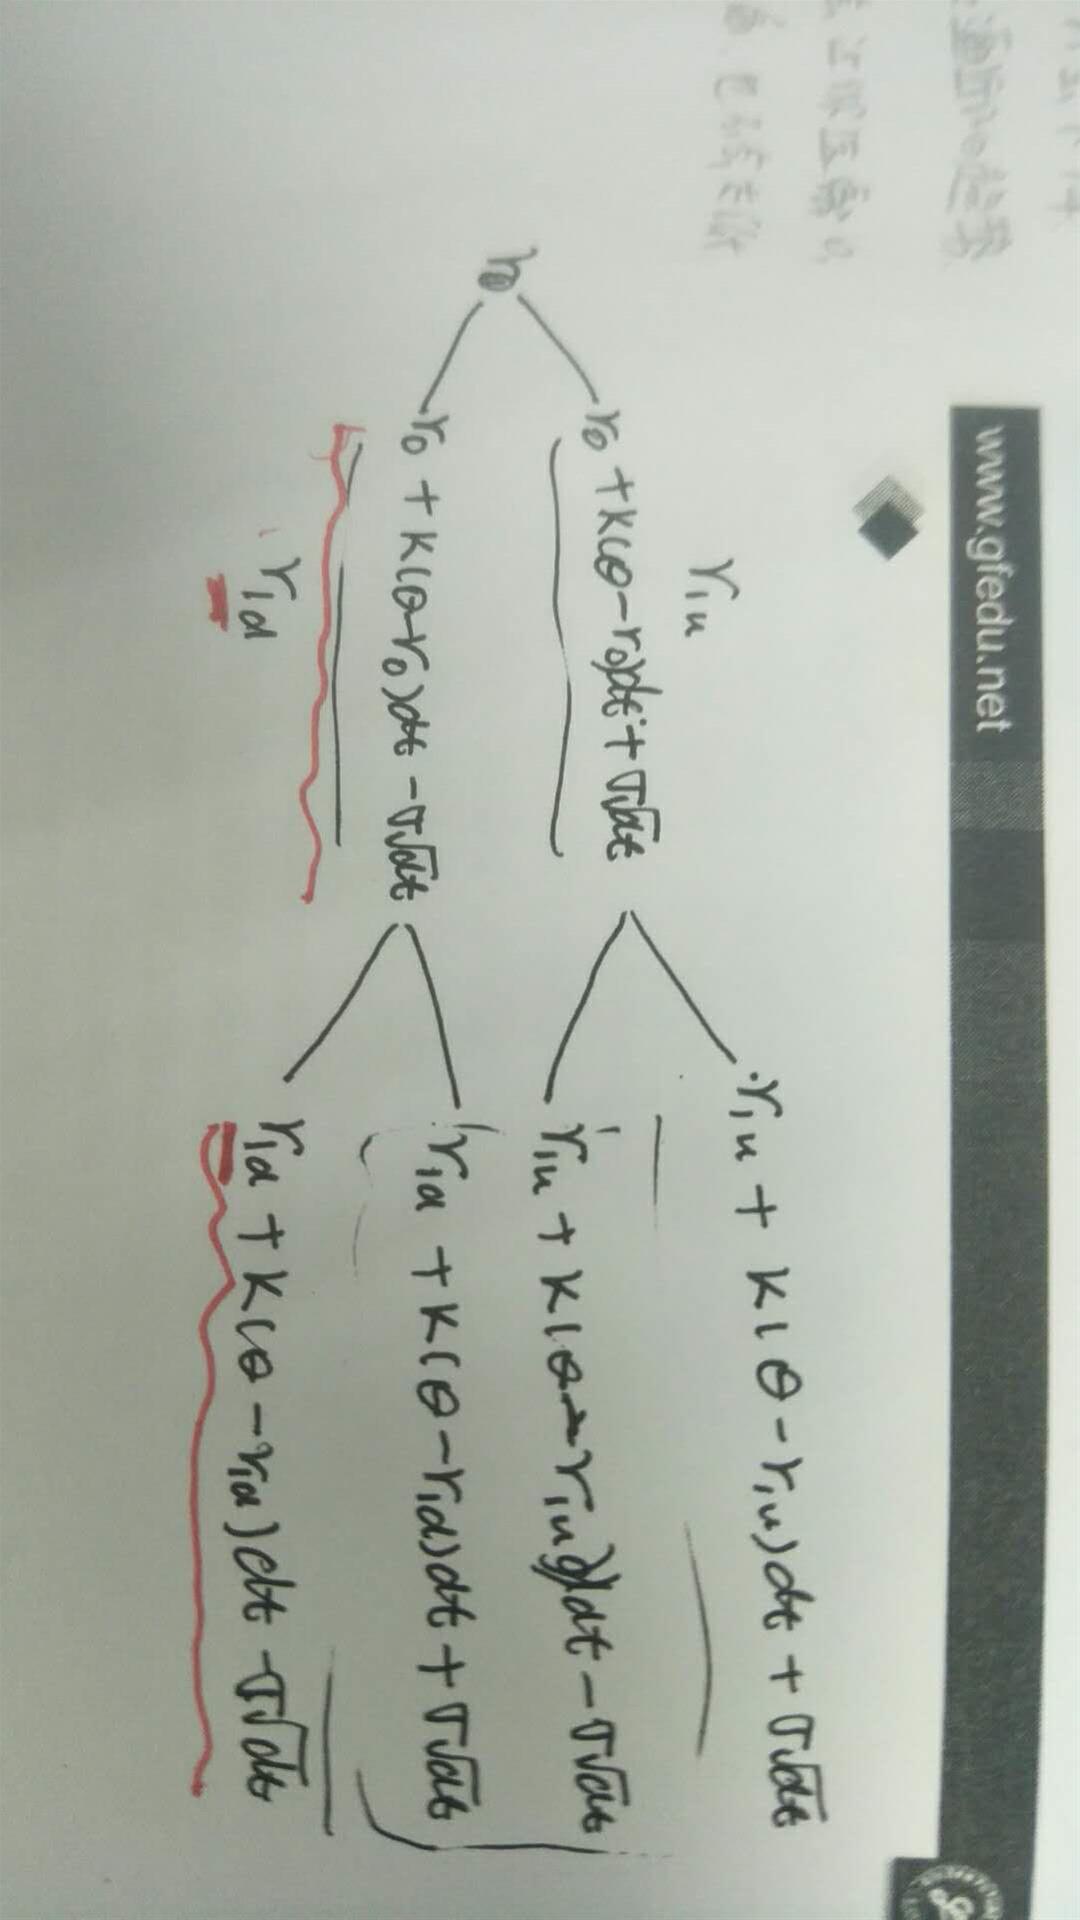 www.gfedu.net
r₁u
r₀ + k(θ-r₀)dt + σ√dt
r₀
r₀ + k(θ-r₀)dt - σ√dt
r₁d
r₁u + k(θ-r₁u)dt + σ√dt
r₁u + k(θ-r₁u)dt - σ√dt
r₁d + k(θ-r₁d)dt + σ√dt
r₁d + k(θ-r₁d)dt - σ√dt